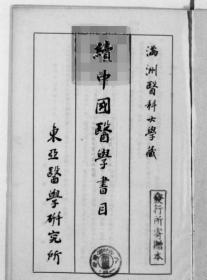 滿洲醫科大學藏
續中國醫學書目
東亞醫學研究所
發行所寄贈本